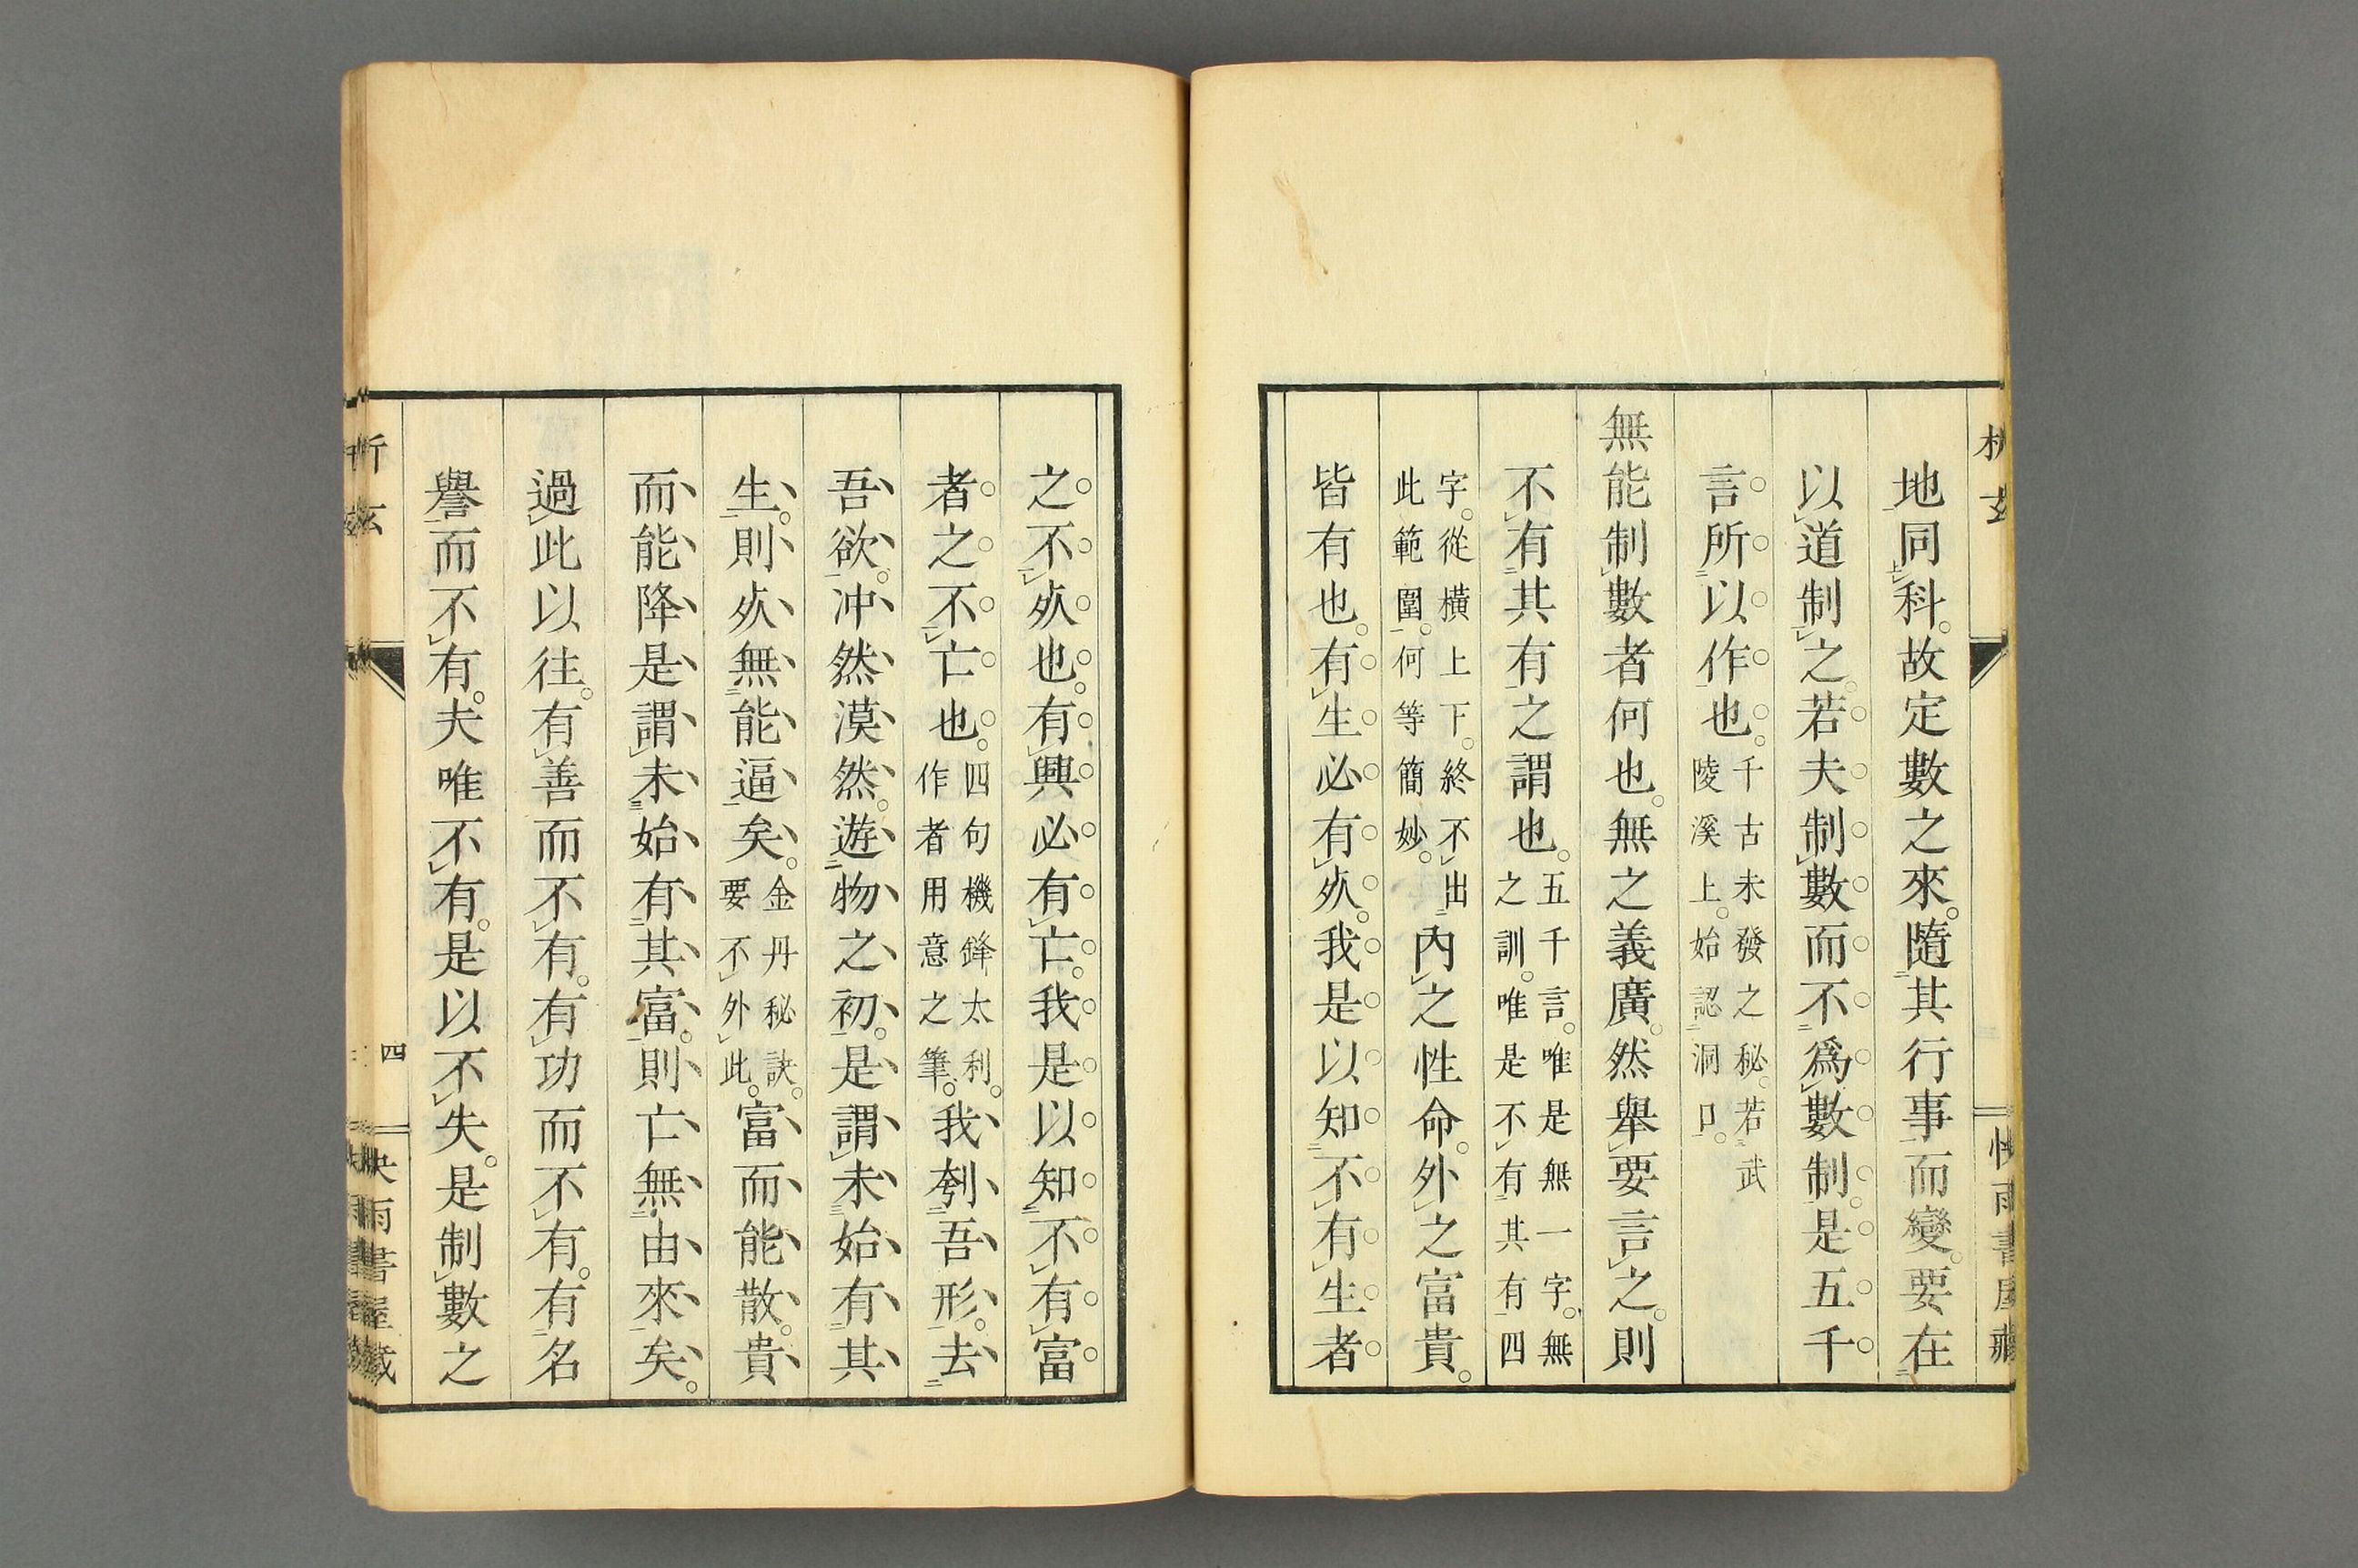 析玄 快雨書屋藏
地同科。故定數之來。隨其行事而變。要在
以道制之。若夫制數而不爲數制。是五千
言所以作也。千古未發之秘。若武
陵溪上。始認洞口。
無能制數者何也。無之義廣。然舉要言之。則
不有其有之謂也。五千言。唯是無一字。無
之訓。唯是不有其有四
字。從橫上下。終不出
此範圍。何等簡妙。內之性命。外之富貴。
皆有也。有生必有死。我是以知不有生者
之不死也。有興必有亡。我是以知不有富
者之不亡也。四句機鋒太利。
作者用意之筆。我刳吾形。去
吾欲。冲然漠然。遊物之初。是謂未始有其
生。則死無能逼矣。金丹秘訣。
要不外此。富而能散。貴
而能降。是謂未始有其富。則亡無由來矣。
過此以往。有善而不有。有功而不有。有名
譽而不有。夫唯不有。是以不失。是制數之
析玄 四 快雨書屋藏